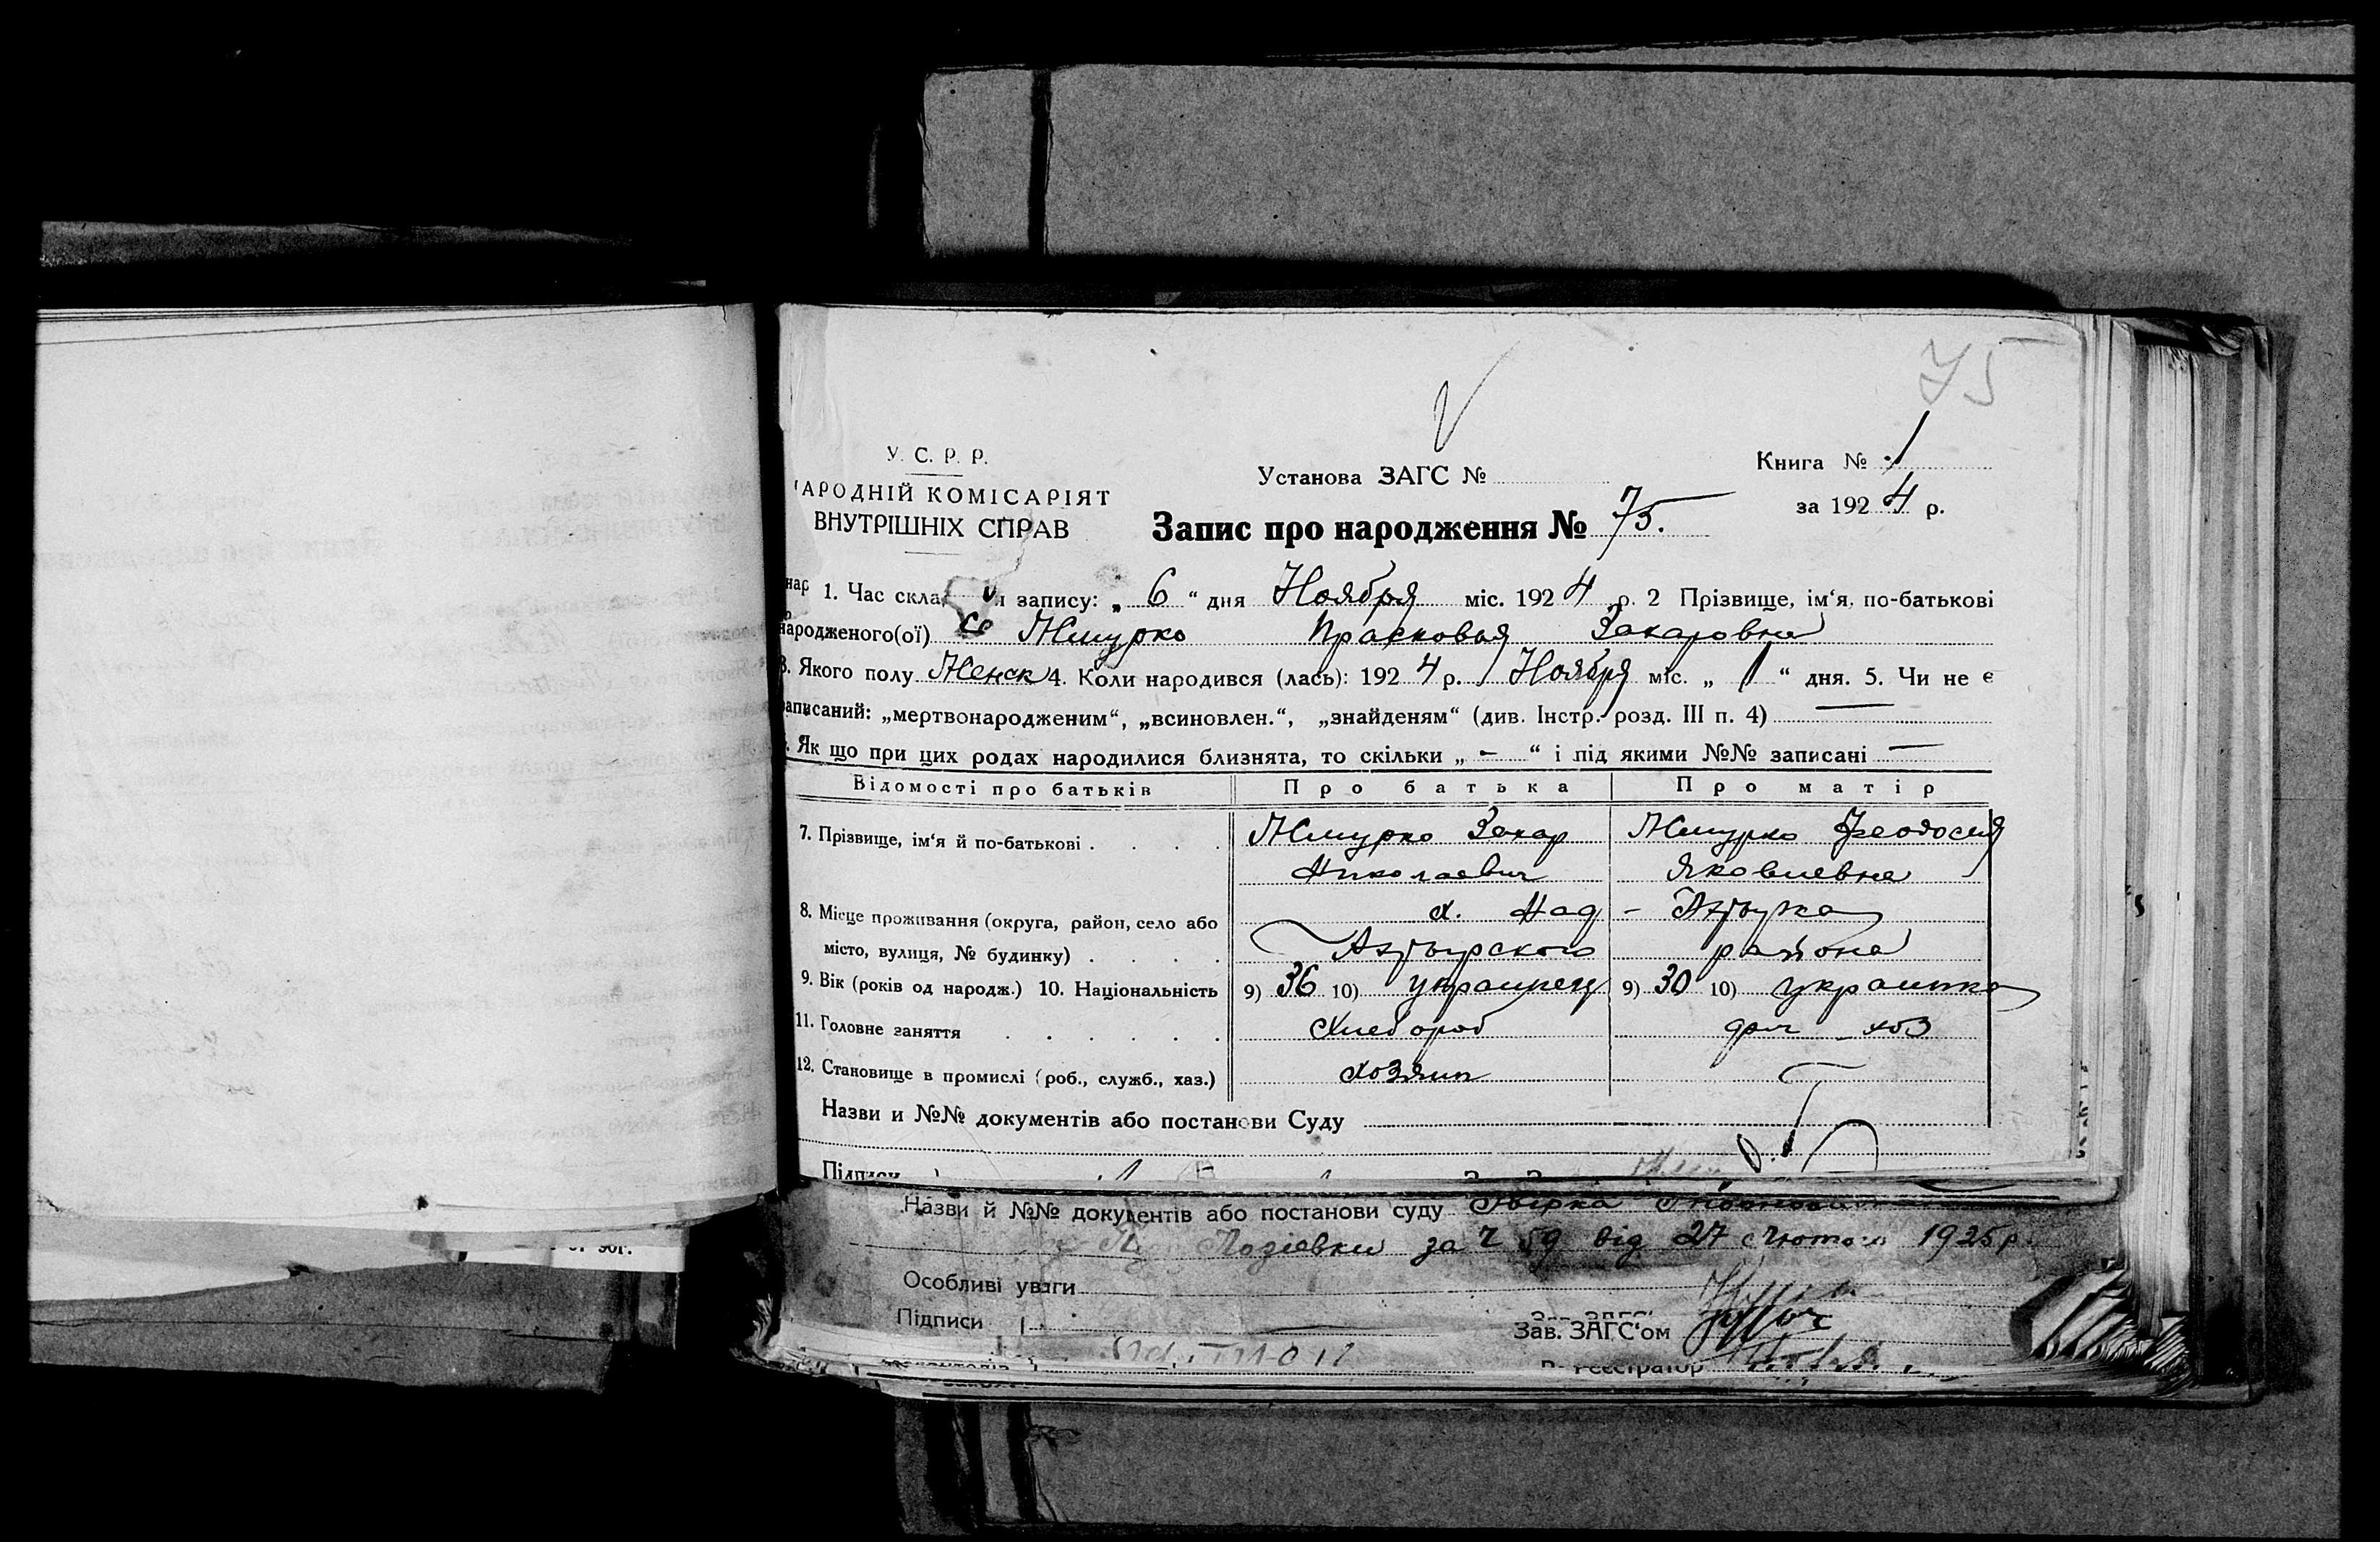 75
У. С. Р. Р.
АРОДНІЙ КОМІСАРІЯТ
ВНУТРІШНІХ СПРАВ
Установа ЗАГС №
Книга № 1
за 1924 р.
Запис про народження № 75.
1. Час скла запису: „ 6 “ дня Ноября міс. 1924 р. 2 Прізвище, ім‘я, по-батькові
народженого(ої) Жмурко Прасковья Захаровна
3. Якого полу Женск 4. Коли народився (лась): 1924 р. Ноября міс. „ 1 “ дня. 5. Чи не є
записаний: „мертвонародженим“, „всиновлен.“, „знайденям“ (див. Інстр. розд. III п. 4) —
Як що при цих родах народилися близнята, то скільки „ - “ і під якими №№ записані —
Відомості про батьків Про батька Про матір
7. Прізвище, ім‘я й по-батькові . . . . Жмурко Захар Жмурко Феодосия
Николаевич Яковлевна
8. Місце проживання (округа, район, село або х. Над - Ахтырка
місто, вулиця, № будинку) . . . . Ахтырского района
9. Вік (років од народж.) 10. Національність 9) 36 10) украинец 9) 30 10) украинка
11. Головне заняття . . . . . . Хлебороб дом хоз
12. Становище в промислі (роб., служб., хаз.) хозяин
Назви и №№ документів або постанови Суду
Підписи
Назви й №№ документів або постанови суду
Лозіевки за ч 59 від 27 лютого 1925 р.
Особливі уваги
Підписи
Зав. ЗАГС‘ом
Реєстратор